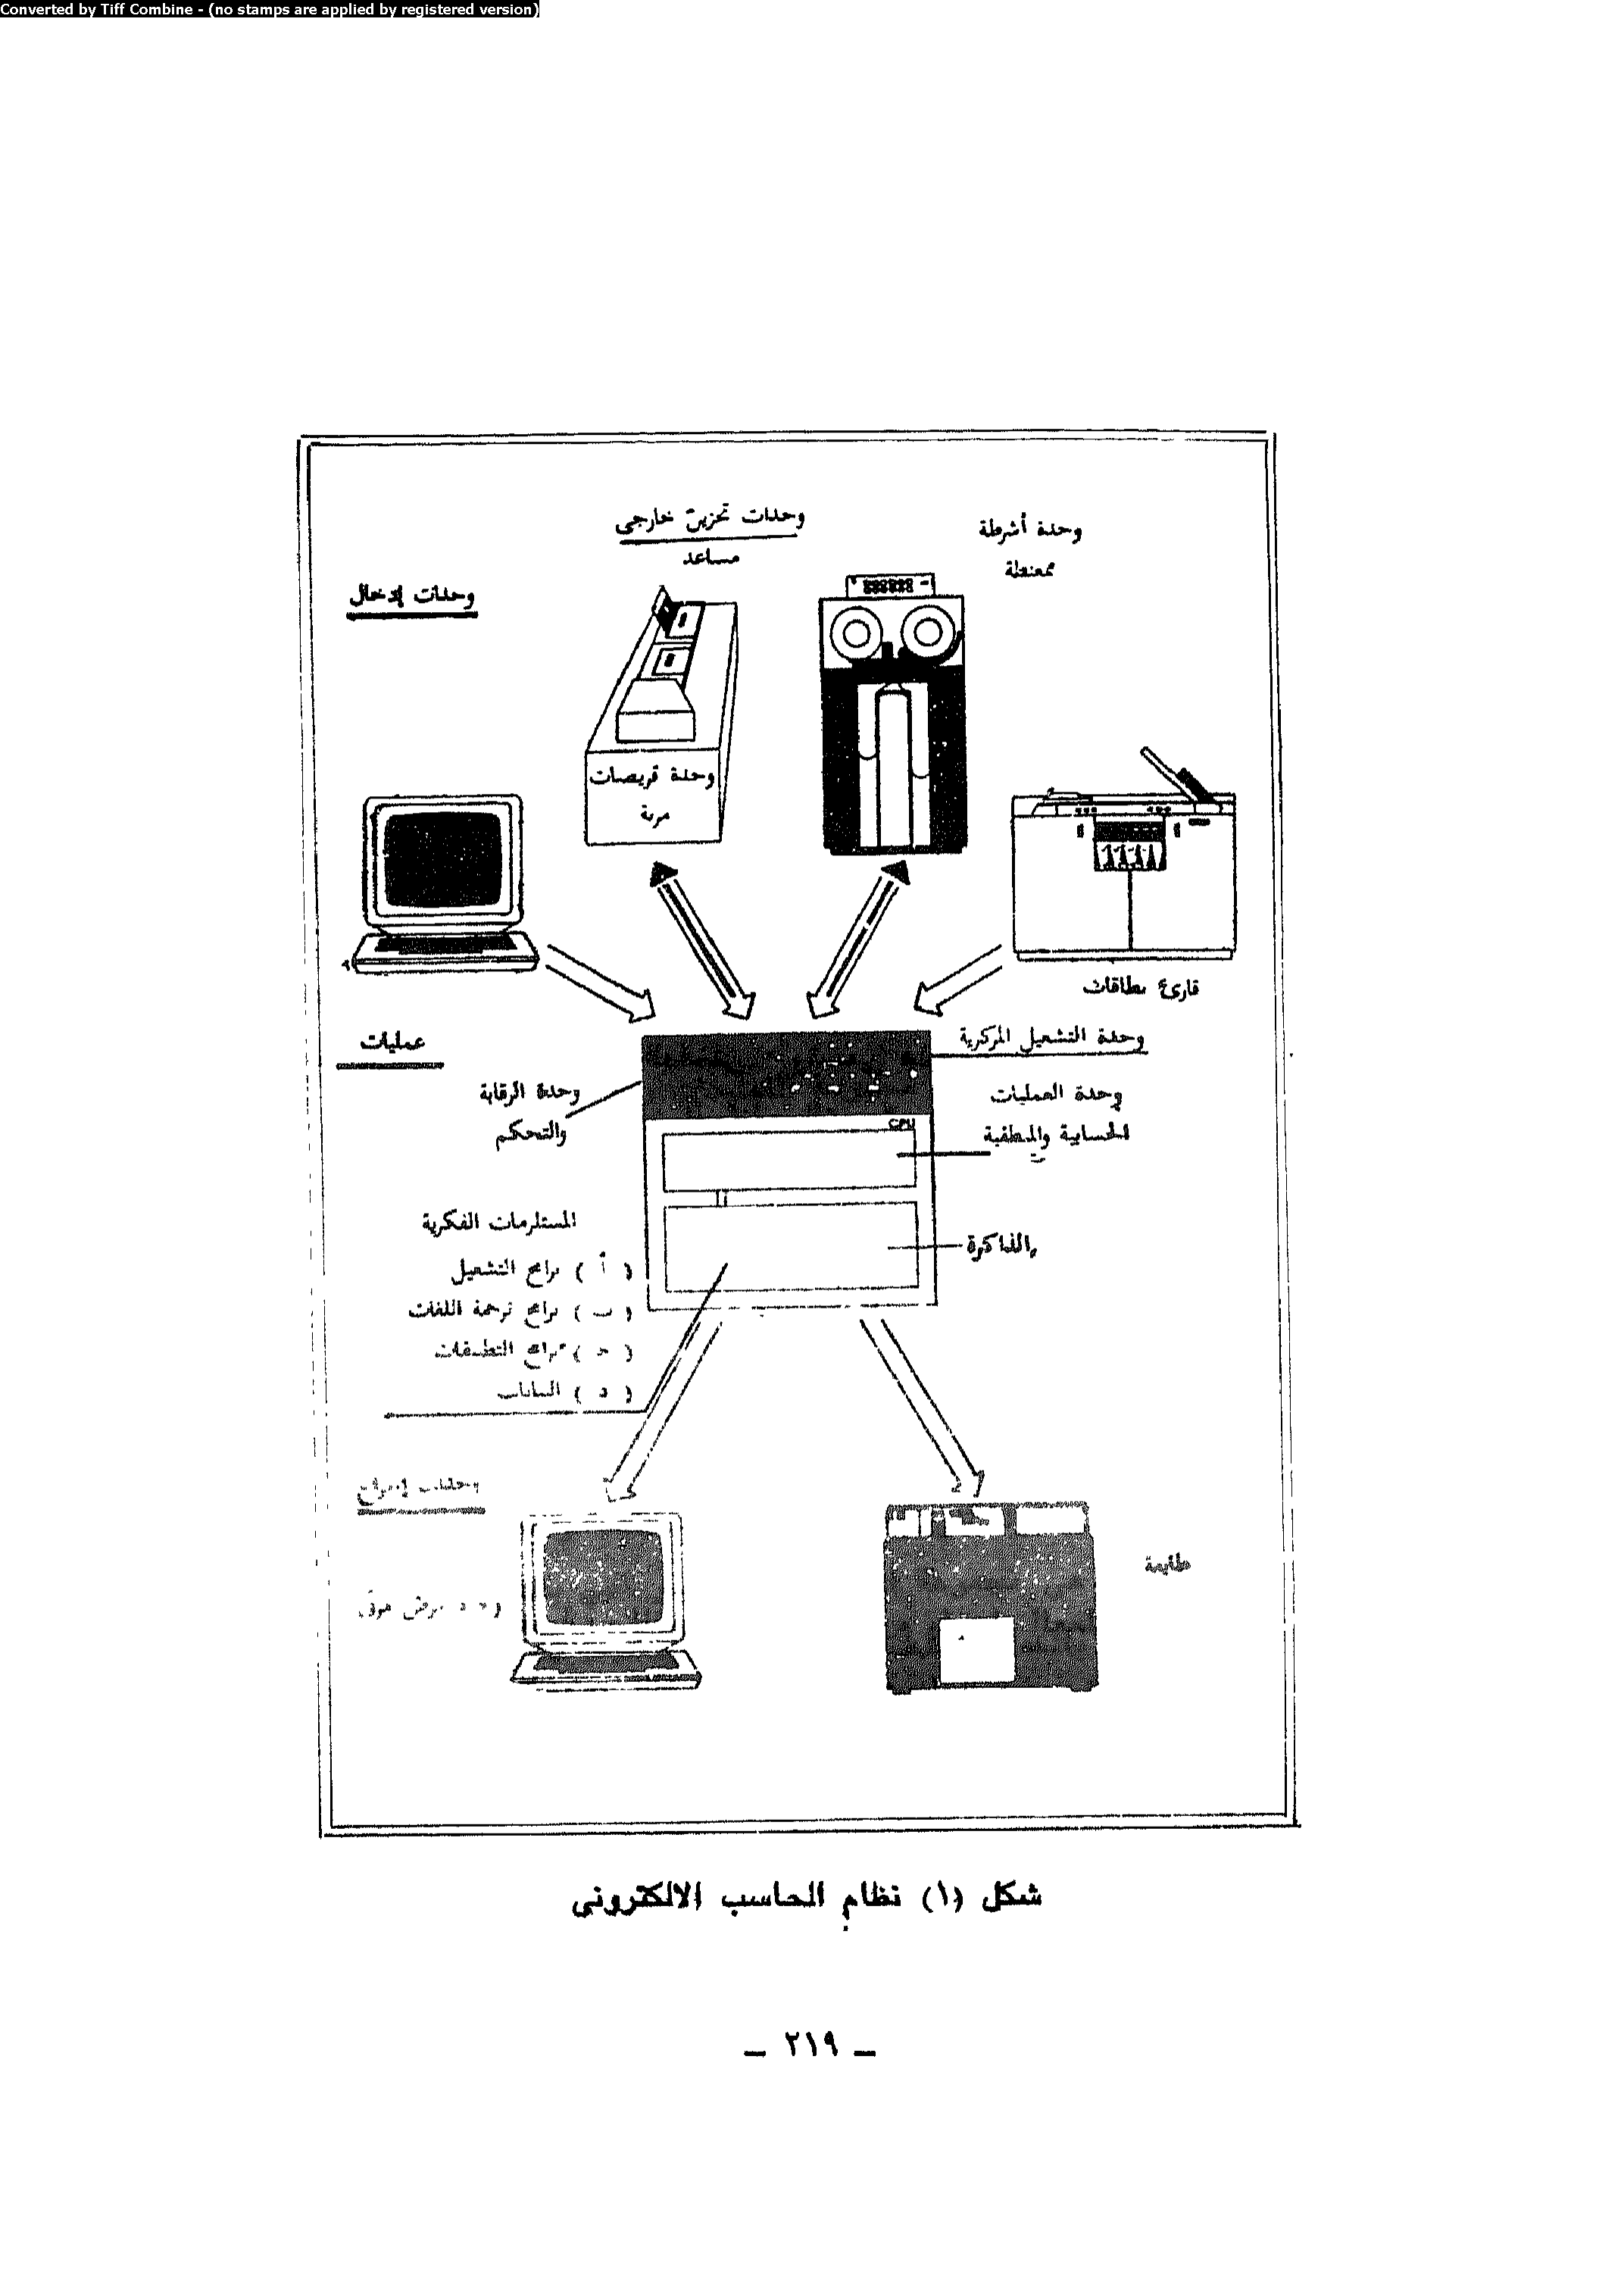 Converted by Tiff Combine - (no stamps are applied by registered version)
وحدات تخزين خارجى
مساعد
وحدة أشرطة
ممغنطة
وحدات إدخال
وحدة قريصات
مرنة
قارئ بطاقات
عمليات
وحدة التشغيل المركزية
وحدة الرقابة
والتحكم
وحدة العمليات
الحسابية والمنطقية
CPU
والذاكرة
المستلزمات الفكرية
( أ ) برامج التشغيل
( ب ) برامج ترجمة اللغات
( جـ ) برامج التطبيقات
( د ) البيانات
وحدات إخراج
طابعة
عرض
شكل (١) نظام الحاسب الالكترونى
ـ ٢١٩ ـ